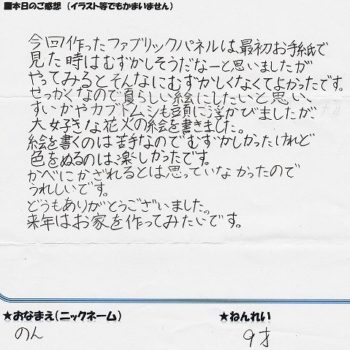 ■本日のご感想 (イラスト等でもかまいません)
今回作ったファブリックパネルは最初お手紙で
見た時はむずかしそうだなーと思いましたが
やってみるとそんなにむずかしくなくてよかったです。
せっかくなので夏らしい絵にしたいと思い、
すいかやカブトムシも頭に浮かびましたが、
大好きな花火の絵を書きました。
絵を書くのは苦手なのでむずかしかったけれど
色をぬるのは、楽しかったです。
かべにかざれるとは思っていなかったので
うれしいです。
どうもありがとうございました。
来年はお家を作ってみたいです。
★おなまえ(ニックネーム)
のん
★ねんれい
9才